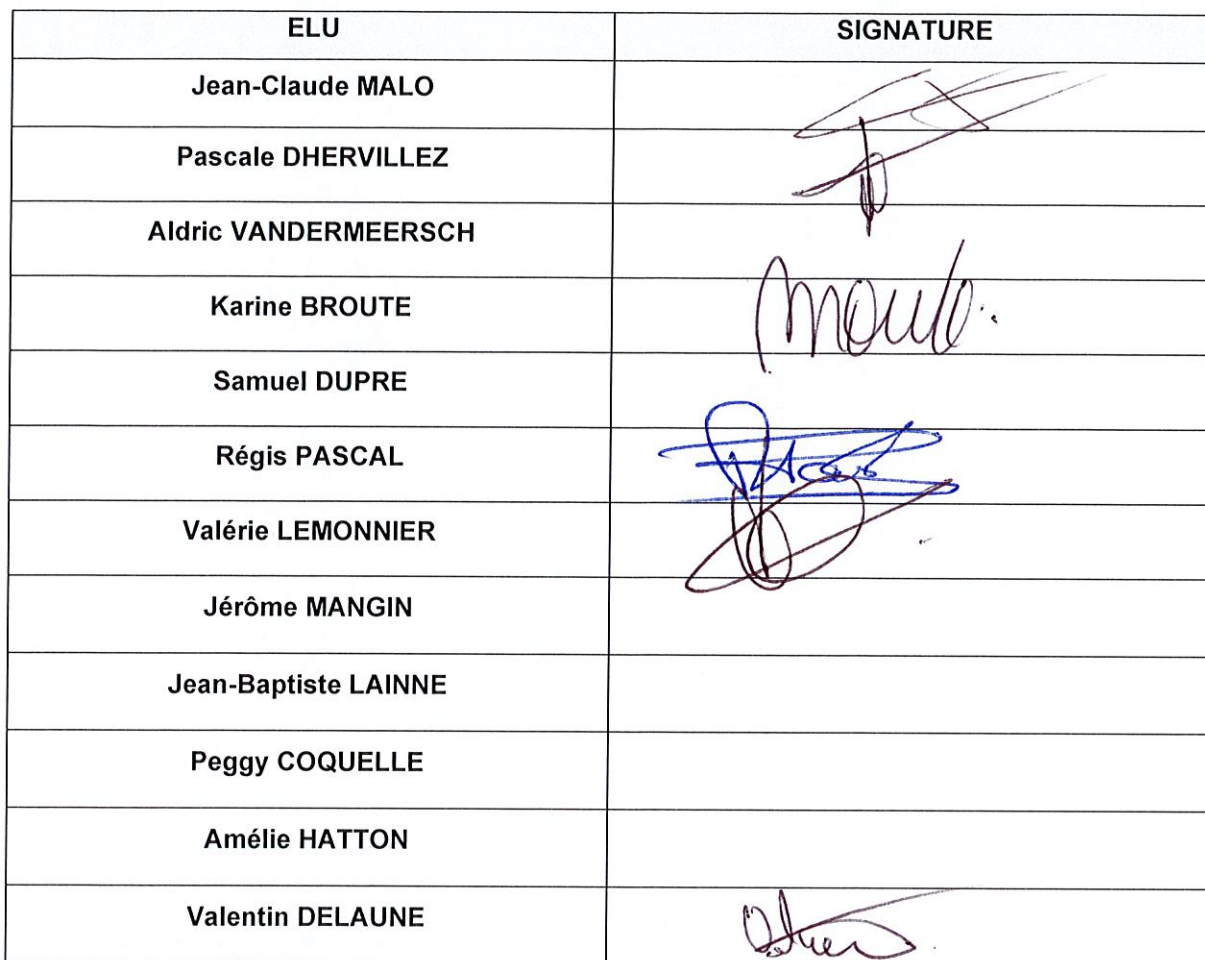 ELU SIGNATURE
Jean-Claude MALO
Pascale DHERVILLEZ
Aldric VANDERMEERSCH
Karine BROUTE
Samuel DUPRE
Régis PASCAL
Valérie LEMONNIER
Jérôme MANGIN
Jean-Baptiste LAINNE
Peggy COQUELLE
Amélie HATTON
Valentin DELAUNE